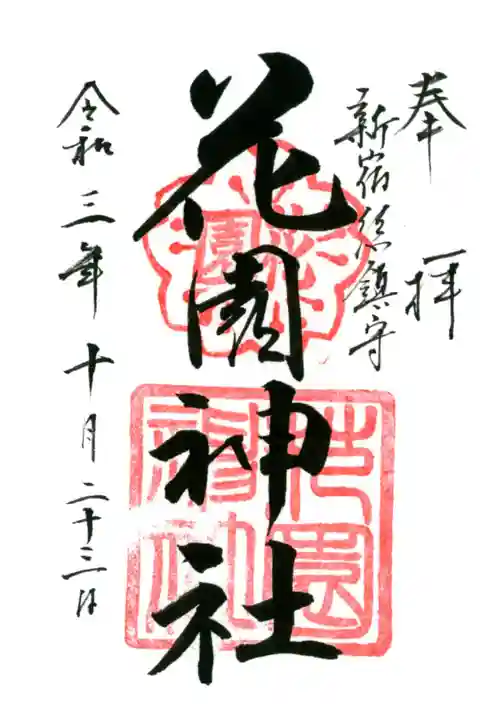 奉拝
新宿総鎮守
花園神社
令和三年十月二十三日